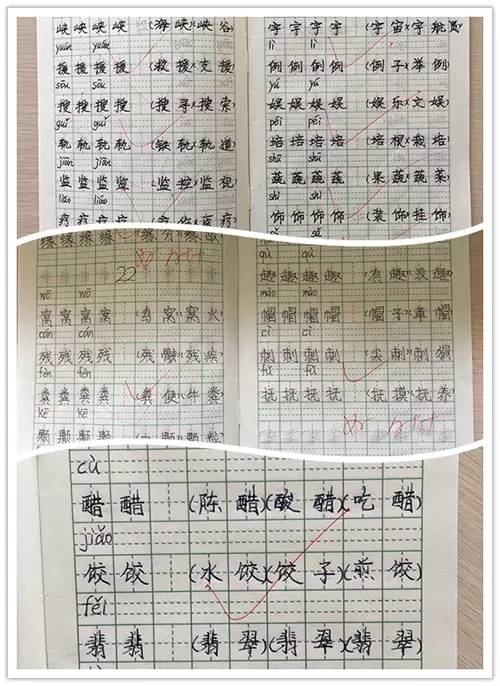 峡 峡 峡 峡 (海 峡)(峡 谷)
yuán yuán
援 援 援 援 (救 援)(支 援)
sōu sōu
搜 搜 搜 搜 (搜 寻)(搜 索)
guǐ guǐ
轨 轨 轨 轨 (铁 轨)(轨 道)
jiān jiān
监 监 监 监 (监 控)(监 视)
liáo liáo
疗 疗 疗 疗
宇 宇 宇 宇 (宇 宙)(宇 航 员)
lì lì
例 例 例 例 (例 子)(举 例)
yú yú
娱 娱 娱 娱 (娱 乐)(文 娱)
péi péi
培 培 培 培 (培 根)(栽 培)
shū shū
蔬 蔬 蔬 蔬 (果 蔬)(蔬 菜)
shì shì
饰 饰 饰 饰 (装 饰)(挂 饰)
sù sù
缘 缘 缘 缘 (缘 分)
22
wō wō
窝 窝 窝 (鸟 窝)(窝 火)
cán cán
残 残 残 (残 骸)(残 疾)
fèn fèn
粪 粪 粪 (粪 便)(牛 粪)
kē kē
颗 颗 颗
qù qù
趣 趣 趣 (有 趣)(没 趣)
mào mào
帽 帽 帽 帽 (帽 子)(草 帽)
cì cì
刺 刺 刺 刺 (尖 刺)(刺 猬)
fǔ fǔ
抚 抚 抚 抚 (抚 摸)(抚 养)
cù
醋 醋 (陈 醋)(酸 醋)(吃 醋)
jiǎo
饺 饺 (水 饺)(饺 子)(煎 饺)
fěi
翡 翡 (翡 翠)(翡 翠)(翡 翠)